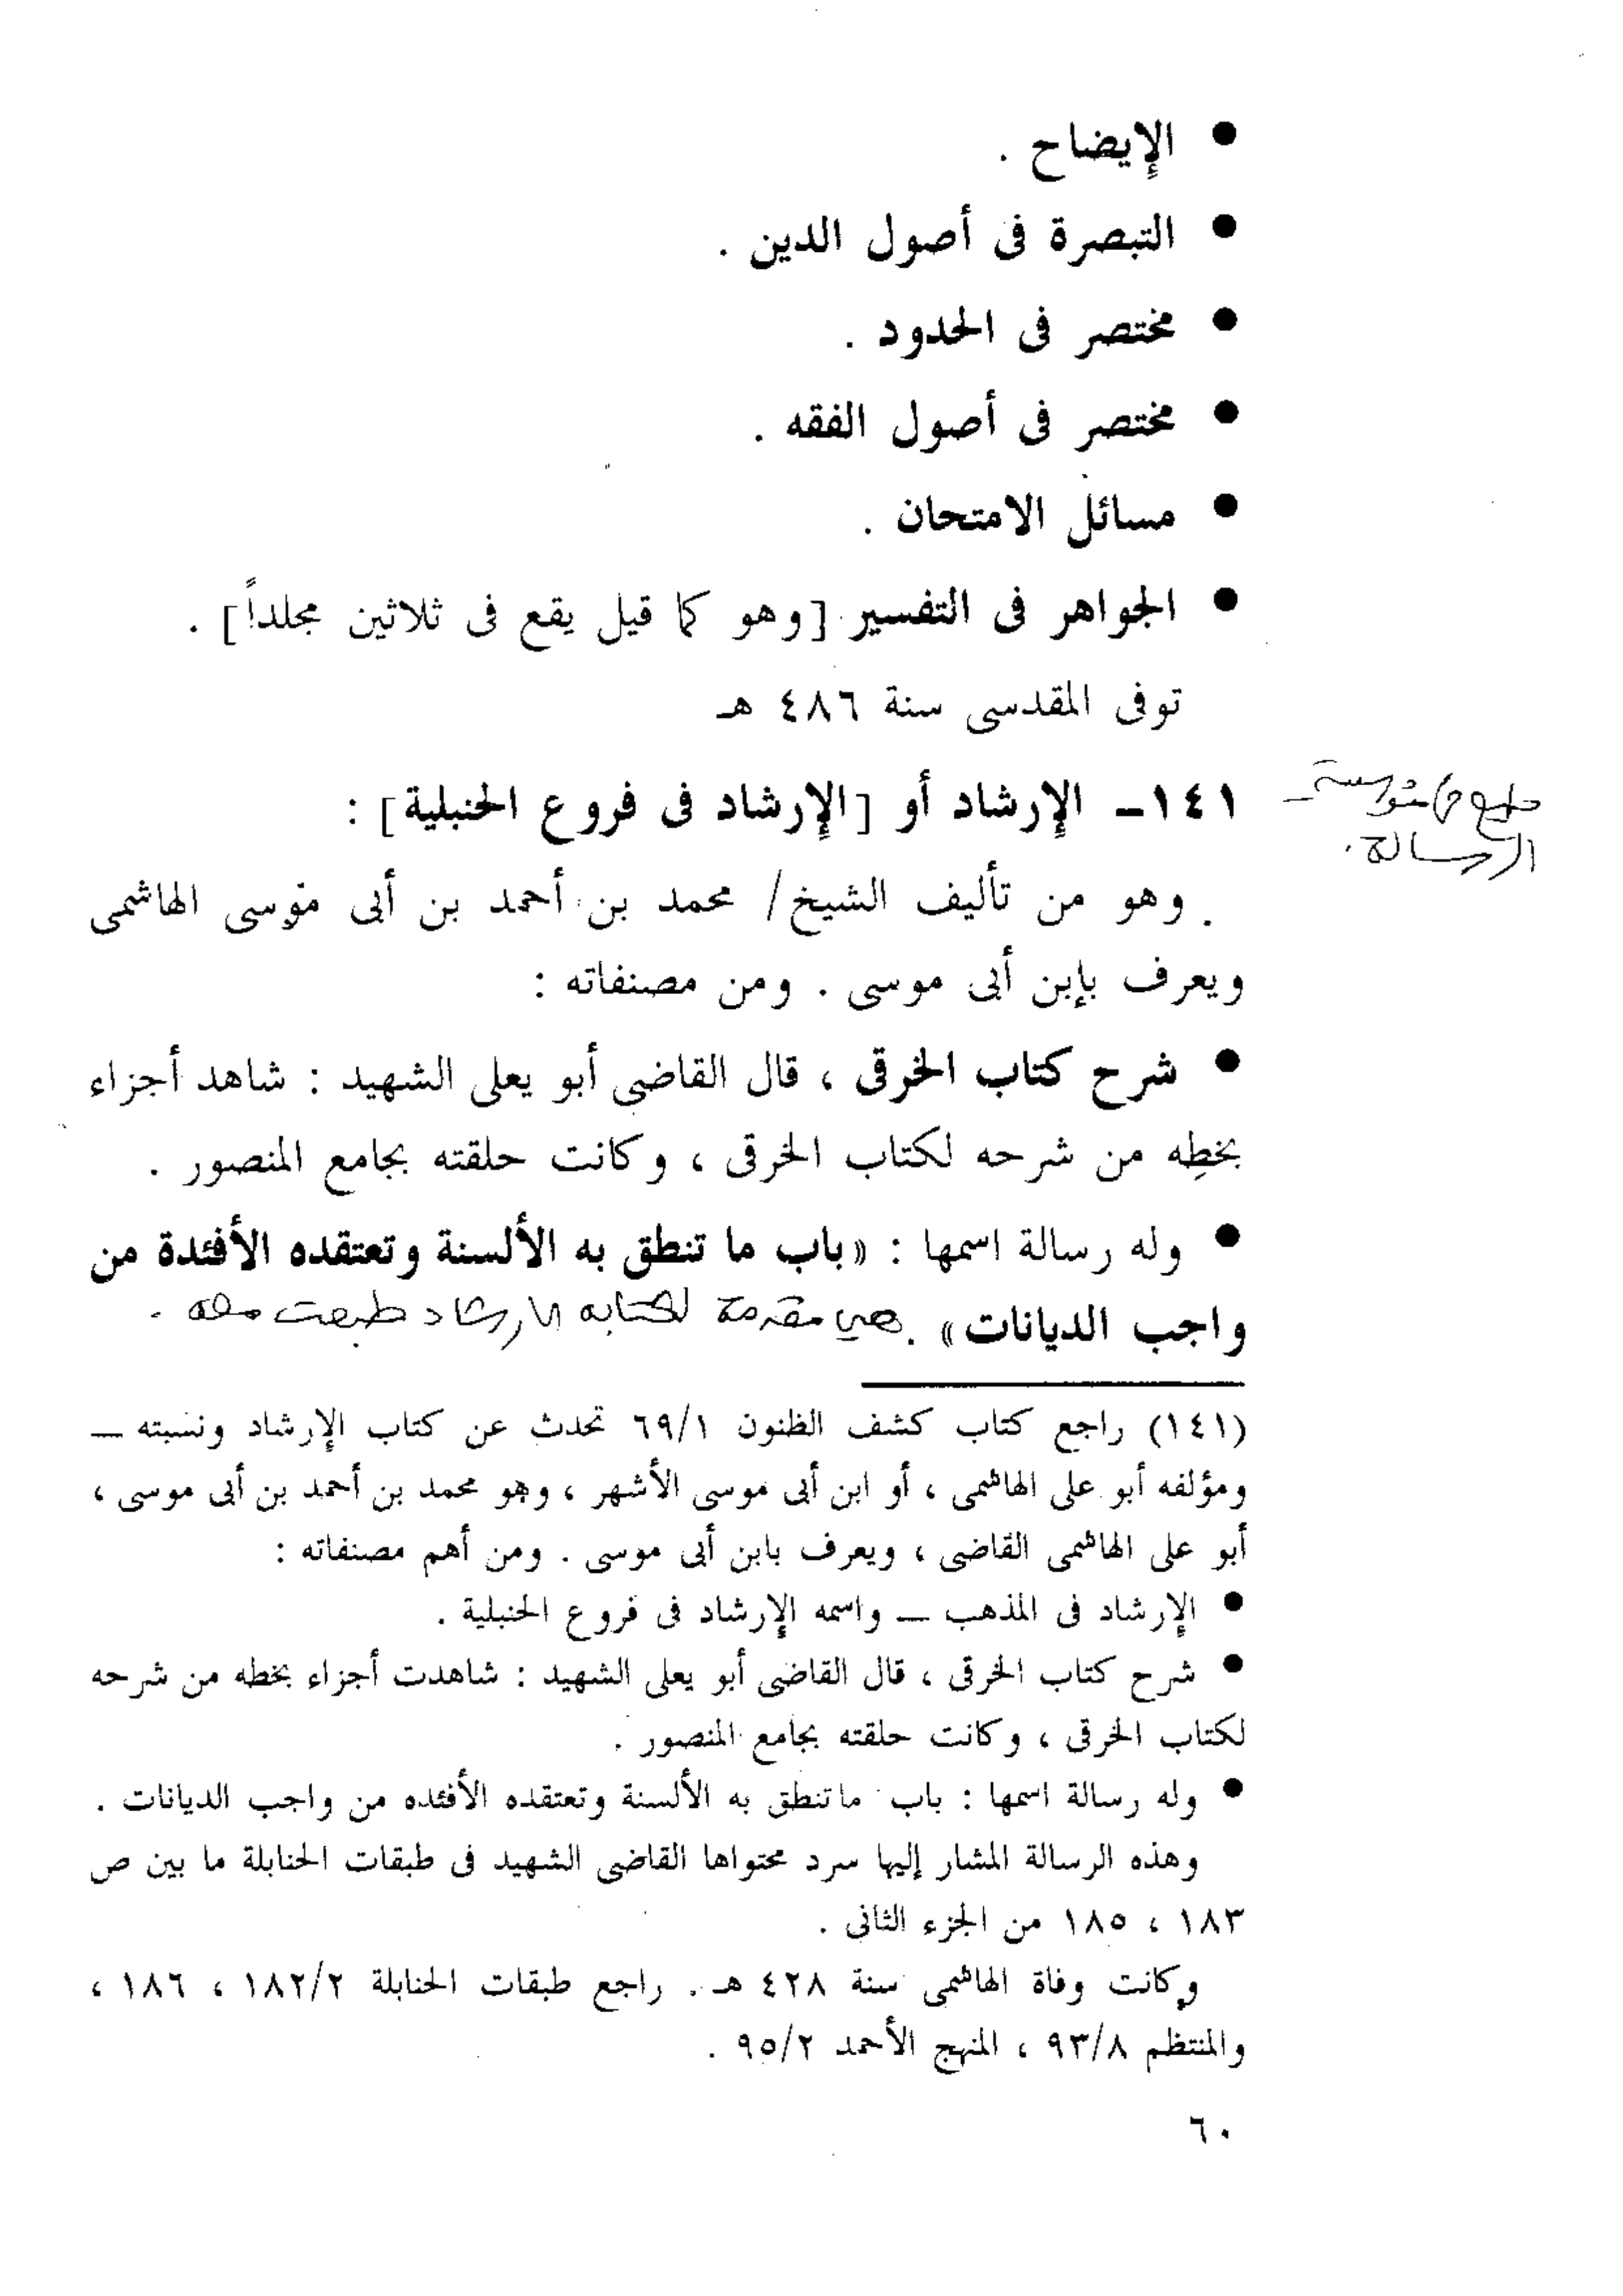 ● الإيضاح .
● التبصرة فى أصول الدين .
● مختصر فى الحدود .
● مختصر فى أصول الفقه .
● مسائل الامتحان .
● الجواهر فى التفسير [وهو كما قيل يقع فى ثلاثين مجلداً] .
توفى المقدسى سنة ٤٨٦ هـ
١٤١ــ الإرشاد أو [الإرشاد فى فروع الحنبلية] :
طبع مؤسسة
الرسالة.
وهو من تأليف الشيخ/ محمد بن أحمد بن أبى موسى الهاشمى
ويعرف بإبن أبى موسى . ومن مصنفاته :
● شرح كتاب الخرقى ، قال القاضى أبو يعلى الشهيد : شاهد أجزاء
بخطِه من شرحه لكتاب الخرقى ، وكانت حلقته بجامع المنصور .
● وله رسالة اسمها : «باب ما تنطق به الألسنة وتعتقده الأفئدة من
واجب الديانات» . هي مقدمة لكتابه الارشاد طبعت معه .
(١٤١) راجع كتاب كشف الظنون ٦٩/١ تحدث عن كتاب الإرشاد ونسبته ــ
ومؤلفه أبو على الهاشمى ، أو ابن أبى موسى الأشهر ، وهو محمد بن أحمد بن أبى موسى ،
أبو على الهاشمى القاضى ، ويعرف بابن أبى موسى . ومن أهم مصنفاته :
● الإرشاد فى المذهب ــ واسمه الإرشاد فى فروع الحنبلية .
● شرح كتاب الخرقى ، قال القاضى أبو يعلى الشهيد : شاهدت أجزاء بخطه من شرحه
لكتاب الخرقى ، وكانت حلقته بجامع المنصور .
● وله رسالة اسمها : باب ماتنطق به الألسنة وتعتقده الأفئده من واجب الديانات .
وهذه الرسالة المشار إليها سرد محتواها القاضى الشهيد فى طبقات الحنابلة ما بين ص
١٨٣ ، ١٨٥ من الجزء الثانى .
وكانت وفاة الهاشمى سنة ٤٢٨ هـ . راجع طبقات الحنابلة ١٨٢/٢ ، ١٨٦ ،
والمنتظم ٩٣/٨ ، المنهج الأحمد ٩٥/٢ .
٦٠